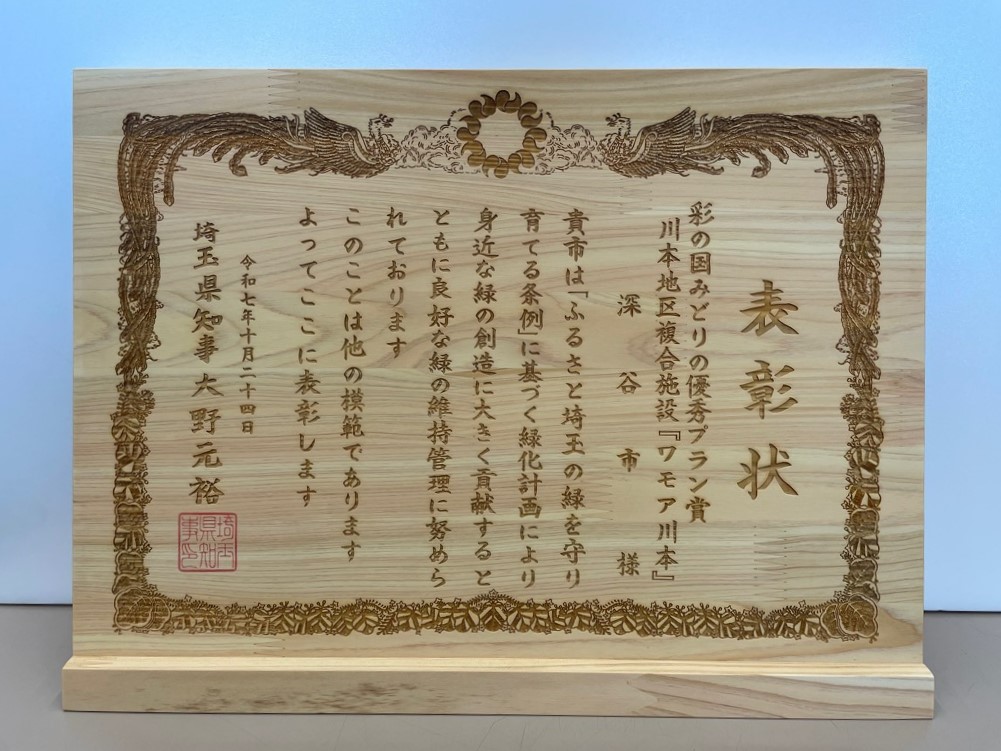 表彰状
彩の国みどりの優秀プラン賞
川本地区複合施設『ワモア川本』
深谷市様
貴市は「ふるさと埼玉の緑を守り
育てる条例」に基づく緑化計画により
身近な緑の創造に大きく貢献すると
ともに良好な緑の維持管理に努めら
れております
このことは他の模範であります
よってここに表彰します
令和七年十月二十四日
埼玉県知事 大野元裕
埼玉県知事印